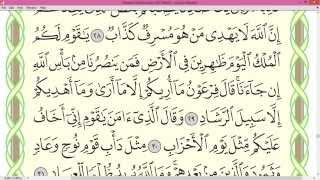 إِنَّ ٱللَّهَ لَا يَهْدِى مَنْ هُوَ مُسْرِفٌ كَذَّابٌ ٢٨ يَٰقَوْمِ لَكُمُ
ٱلْمُلْكُ ٱلْيَوْمَ ظَٰهِرِينَ فِى ٱلْأَرْضِ فَمَن يَنصُرُنَا مِنۢ بَأْسِ ٱللَّهِ
إِن جَآءَنَا ۚ قَالَ فِرْعَوْنُ مَآ أُرِيكُمْ إِلَّا مَآ أَرَىٰ وَمَآ أَهْدِيكُمْ
إِلَّا سَبِيلَ ٱلرَّشَادِ ٢٩ وَقَالَ ٱلَّذِىٓ ءَامَنَ يَٰقَوْمِ إِنِّىٓ أَخَافُ
عَلَيْكُم مِّثْلَ يَوْمِ ٱلْأَحْزَابِ ٣٠ مِثْلَ دَأْبِ قَوْمِ نُوحٍ وَعَادٍ
وَثَمُودَ وَٱلَّذِينَ مِنۢ بَعْدِهِمْ ۚ وَمَا ٱللَّهُ يُرِيدُ ظُلْمًا لِّلْعِبَادِ ٣١